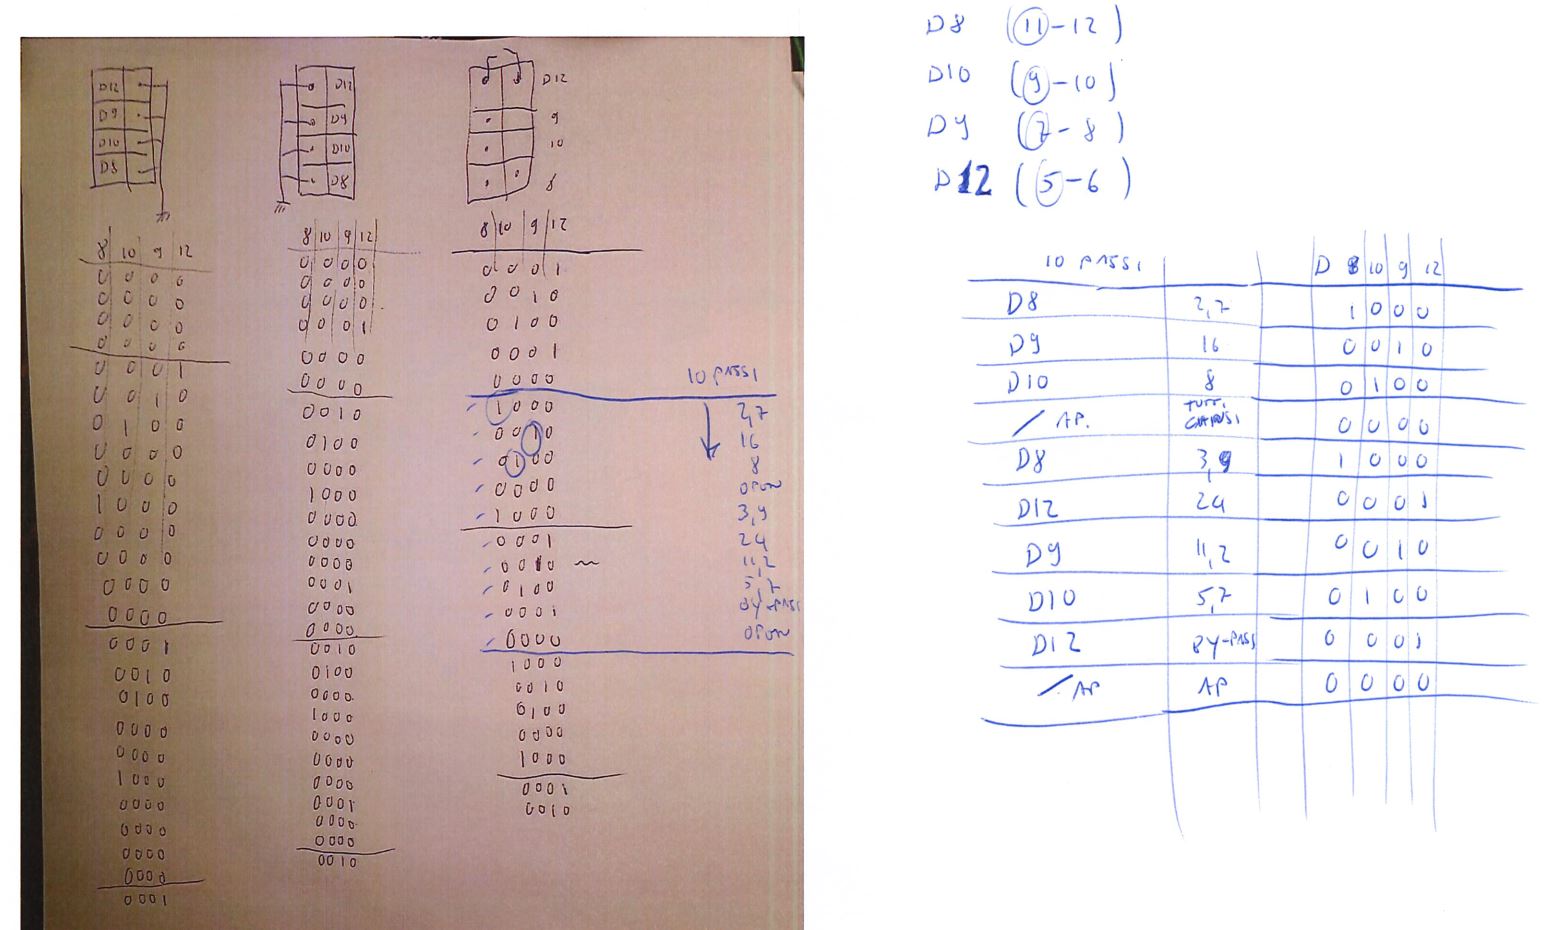 D12
D9
D10
D8
8 10 9 12
0 0 0 0
0 0 0 0
0 0 0 0
0 0 0 0
0 0 0 1
0 0 1 0
0 1 0 0
0 0 0 0
0 0 0 0
1 0 0 0
0 0 0 0
0 0 0 0
0 0 0 0
0 0 0 0
0 0 0 1
0 0 1 0
0 1 0 0
0 0 0 0
0 0 0 0
1 0 0 0
0 0 0 0
0 0 0 0
0 0 0 0
0 0 0 0
0 0 0 1
D12
D9
D10
D8
8 10 9 12
0 0 0 0
0 0 0 0
0 0 0 0
0 0 0 1
0 0 0 0
0 0 0 0
0 0 1 0
0 1 0 0
0 0 0 0
1 0 0 0
0 0 0 0
0 0 0 0
0 0 0 0
0 0 0 1
0 0 0 0
0 0 0 0
0 0 1 0
0 1 0 0
0 0 0 0
1 0 0 0
0 0 0 0
0 0 0 0
0 0 0 0
0 0 0 1
0 0 0 0
0 0 0 0
0 0 1 0
D12
9
10
8
8 10 9 12
0 0 0 1
0 0 1 0
0 1 0 0
0 0 0 1
0 0 0 0
10 PASSI
1 0 0 0 2,7
0 0 1 0 16
0 1 0 0 8
0 0 0 0 OPEN
1 0 0 0 3,9
0 0 0 1 24
0 0 1 0 11,2
0 1 0 0 5,7
0 0 0 1 BY-PASS
0 0 0 0 OPEN
1 0 0 0
0 0 1 0
0 1 0 0
0 0 0 0
1 0 0 0
0 0 0 1
0 0 1 0
D8 (11-12)
D10 (9-10)
D9 (7-8)
D12 (5-6)
10 PASSI D 8 10 9 12
D8 2,7 1 0 0 0
D9 16 0 0 1 0
D10 8 0 1 0 0
/ AP. TUTTI CHIUSI 0 0 0 0
D8 3,9 1 0 0 0
D12 24 0 0 0 1
D9 11,2 0 0 1 0
D10 5,7 0 1 0 0
D12 BY-PASS 0 0 0 1
/ AP AP 0 0 0 0